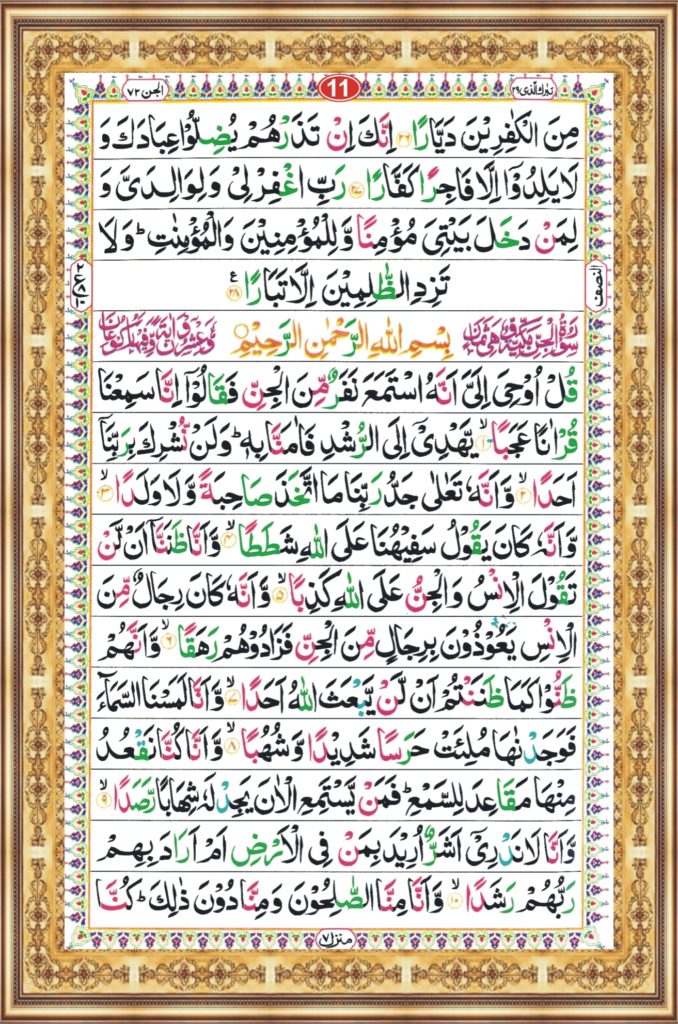 تبٰرك الذی ۲۹
11
الجن ۷۲
مِنَ الْكٰفِرِیْنَ دَیَّارًا ۲۶ اِنَّكَ اِنْ تَذَرْهُمْ یُضِلُّوْا عِبَادَكَ وَ
لَا یَلِدُوْۤا اِلَّا فَاجِرًا كَفَّارًا ۲۷ رَبِّ اغْفِرْ لِیْ وَ لِوَالِدَیَّ وَ
لِمَنْ دَخَلَ بَیْتِیَ مُؤْمِنًا وَّ لِلْمُؤْمِنِیْنَ وَ الْمُؤْمِنٰتِ ؕ وَ لَا
تَزِدِ الظّٰلِمِیْنَ اِلَّا تَبَارًا ۲۸
النصف
بِسْمِ اللّٰهِ الرَّحْمٰنِ الرَّحِیْمِ
قُلْ اُوْحِیَ اِلَیَّ اَنَّهُ اسْتَمَعَ نَفَرٌ مِّنَ الْجِنِّ فَقَالُوْۤا اِنَّا سَمِعْنَا
قُرْاٰنًا عَجَبًا ۙ۱ یَّهْدِیْۤ اِلَی الرُّشْدِ فَاٰمَنَّا بِهٖ ؕ وَ لَنْ نُّشْرِكَ بِرَبِّنَاۤ
اَحَدًا ۙ۲ وَّ اَنَّهٗ تَعٰلٰی جَدُّ رَبِّنَا مَا اتَّخَذَ صَاحِبَةً وَّ لَا وَلَدًا ۙ۳
وَّ اَنَّهٗ كَانَ یَقُوْلُ سَفِیْهُنَا عَلَی اللّٰهِ شَطَطًا ۙ۴ وَّ اَنَّا ظَنَنَّاۤ اَنْ لَّنْ
تَقُوْلَ الْاِنْسُ وَ الْجِنُّ عَلَی اللّٰهِ كَذِبًا ۙ۵ وَّ اَنَّهٗ كَانَ رِجَالٌ مِّنَ
الْاِنْسِ یَعُوْذُوْنَ بِرِجَالٍ مِّنَ الْجِنِّ فَزَادُوْهُمْ رَهَقًا ۙ۶ وَّ اَنَّهُمْ
ظَنُّوْا كَمَا ظَنَنْتُمْ اَنْ لَّنْ یَّبْعَثَ اللّٰهُ اَحَدًا ۙ۷ وَّ اَنَّا لَمَسْنَا السَّمَآءَ
فَوَجَدْنٰهَا مُلِئَتْ حَرَسًا شَدِیْدًا وَّ شُهُبًا ۙ۸ وَّ اَنَّا كُنَّا نَقْعُدُ
مِنْهَا مَقَاعِدَ لِلسَّمْعِ ؕ فَمَنْ یَّسْتَمِعِ الْاٰنَ یَجِدْ لَهٗ شِهَابًا رَّصَدًا ۙ۹
وَّ اَنَّا لَا نَدْرِیْۤ اَشَرٌّ اُرِیْدَ بِمَنْ فِی الْاَرْضِ اَمْ اَرَادَ بِهِمْ
رَبُّهُمْ رَشَدًا ۙ۱۰ وَّ اَنَّا مِنَّا الصّٰلِحُوْنَ وَ مِنَّا دُوْنَ ذٰلِكَ ؕ كُنَّا
منزل۷